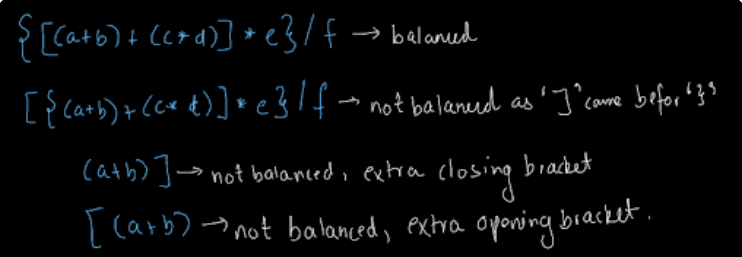 {[(a+b)+(c*d)]*e}/f → balanced
[{(a+b)+(c*d)]*e}/f → not balanced as ']' came befor '}'
(a+b)] → not balanced, extra closing bracket
[(a+b) → not balanced, extra opening bracket.